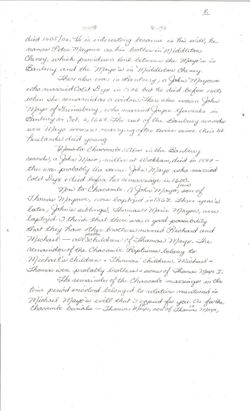 5.
died 1605/06. He is interesting because in his will, he
names Peter Mayow as his brother in Middleton
Cheney, which provides a link between the Mayo's in
Banbury and the Mayo's in Middleton Cheney.
There also was in Banbury, a John Mayow
who married Cold Dyx in but he died before with
when she remarried a widow. There also was a John
Mayo of Grimsbury, who married Joyce in
Banbury on Oct. 6, 1661. The rest of the Banbury records
were Mayo women marrying after their sires (this is
Pentland's) died young.
John Mayo, miller at Wickham, died in
this was probably the same John Mayo who married
Cold Dyx & died before her remarriage in 1608.
Now to Chacombe. A John Mayo, son of
Thomas Mayowe, was baptized in 1568. Three years
later, John's siblings, Thomas & Marie Mayoe, were
baptized. I think that there was a good possibility
that they have other brothers named Richard and
Michael — all children of Thomas Mayo. The
remainder of the Chacombe Baptisms belong to
Michael's children & Thomas' children. Michael &
Thomas were probably brothers & sons of Thomas Mayo I.
The remainder of the Chacombe marriages in the
time period enclosed belonged to relatives mentioned in
Michael Mayo's will that I copied for you. As for the
Chacombe burials — Thomas Mayo, son of Thomas Mayo,